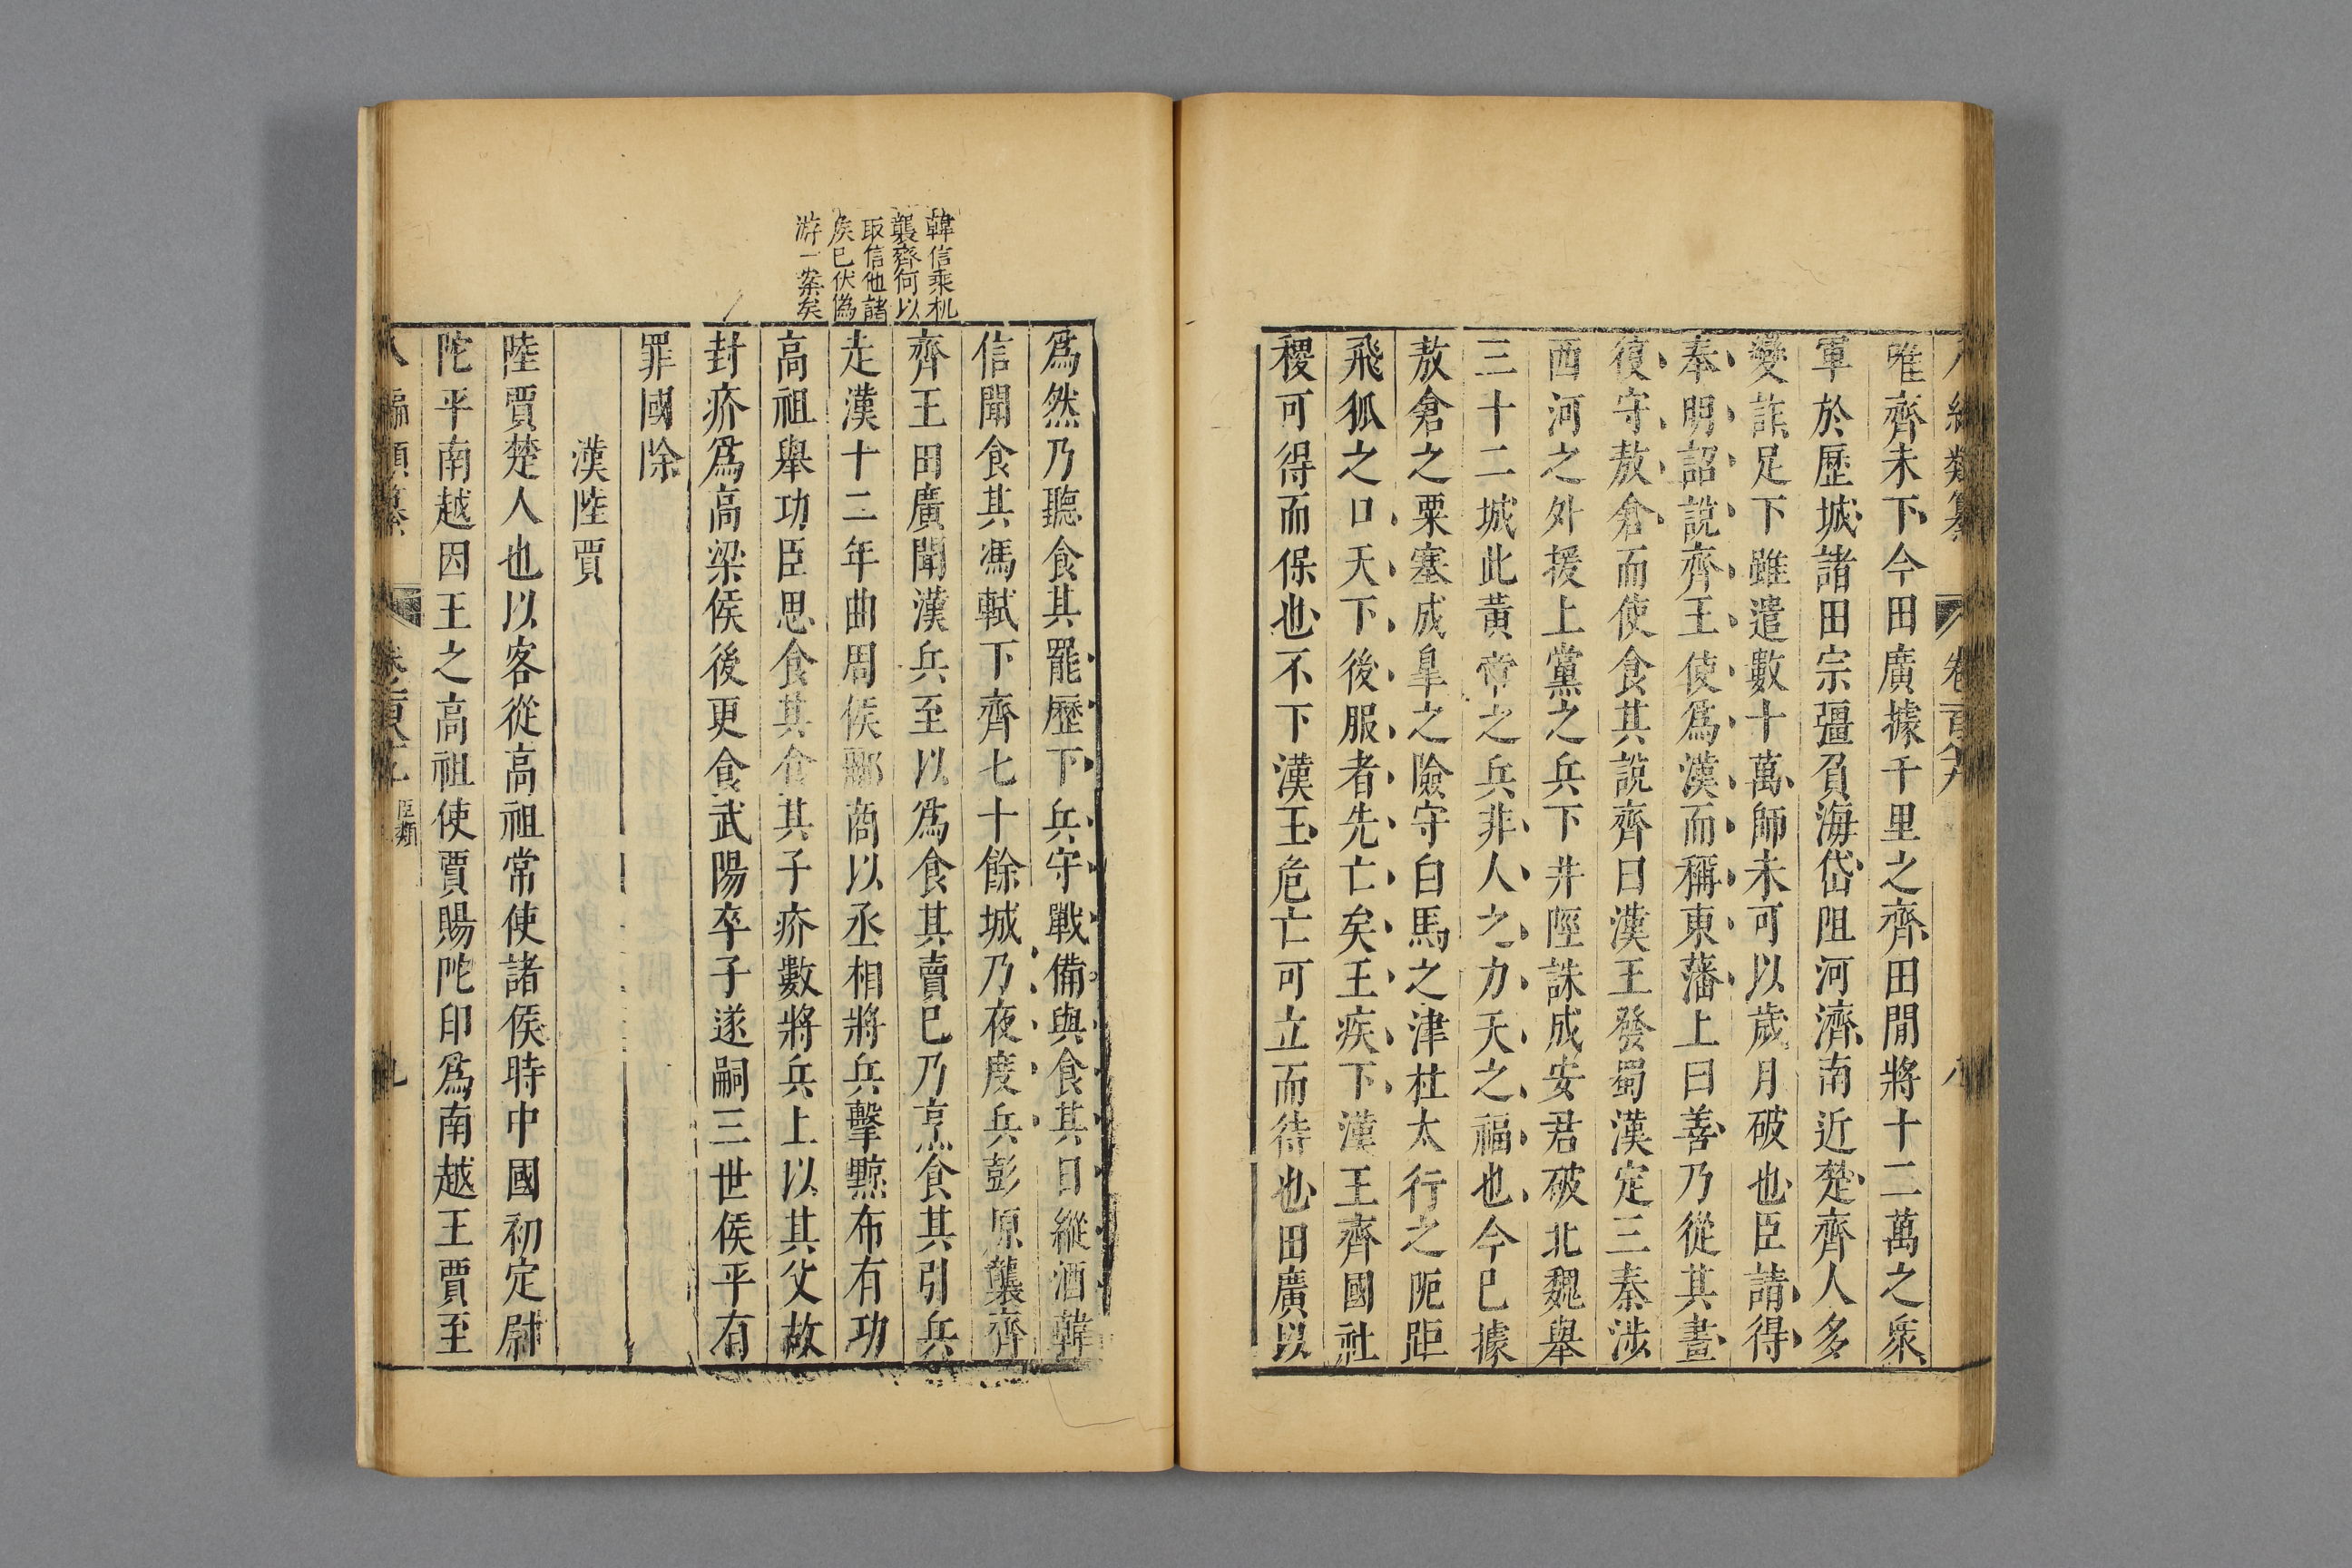 唯齊未下今田廣據千里之齊田間將十二萬之衆
軍於歷城諸田宗彊負海岱阻河濟南近楚齊人多
變詐足下雖遣數十萬師未可以歲月破也臣請得
奉明詔說齊王使爲漢而稱東藩上曰善乃從其畫
復守敖倉而使食其說齊曰漢王發蜀漢定三秦涉
西河之外援上黨之兵下井陘誅成安君破北魏舉
三十二城此黃帝之兵非人之力天之福也今已據
敖倉之粟塞成皐之險守白馬之津杜太行之阨距
飛狐之口天下後服者先亡矣王疾下漢王齊國社
稷可得而保也不下漢王危亡可立而待也田廣以
韓信乘机
襲齊何以
取信他諸
侯已伏偽
游一案矣
爲然乃聽食其罷歷下兵守戰備與食其日縱酒韓
信聞食其馮軾下齊七十餘城乃夜度兵彭原襲齊
齊王田廣聞漢兵至以爲食其賣已乃烹食其引兵
走漢十二年曲周侯酈商以丞相將兵擊黥布有功
高祖舉功臣思食其食其子疥數將兵上以其父故
封疥爲高梁侯後更食武陽卒子遂嗣三世侯平有
罪國除
漢陸賈
陸賈楚人也以客從高祖常使諸侯時中國初定尉
陀平南越因王之高祖使賈賜陀印爲南越王賈至
臣類
九